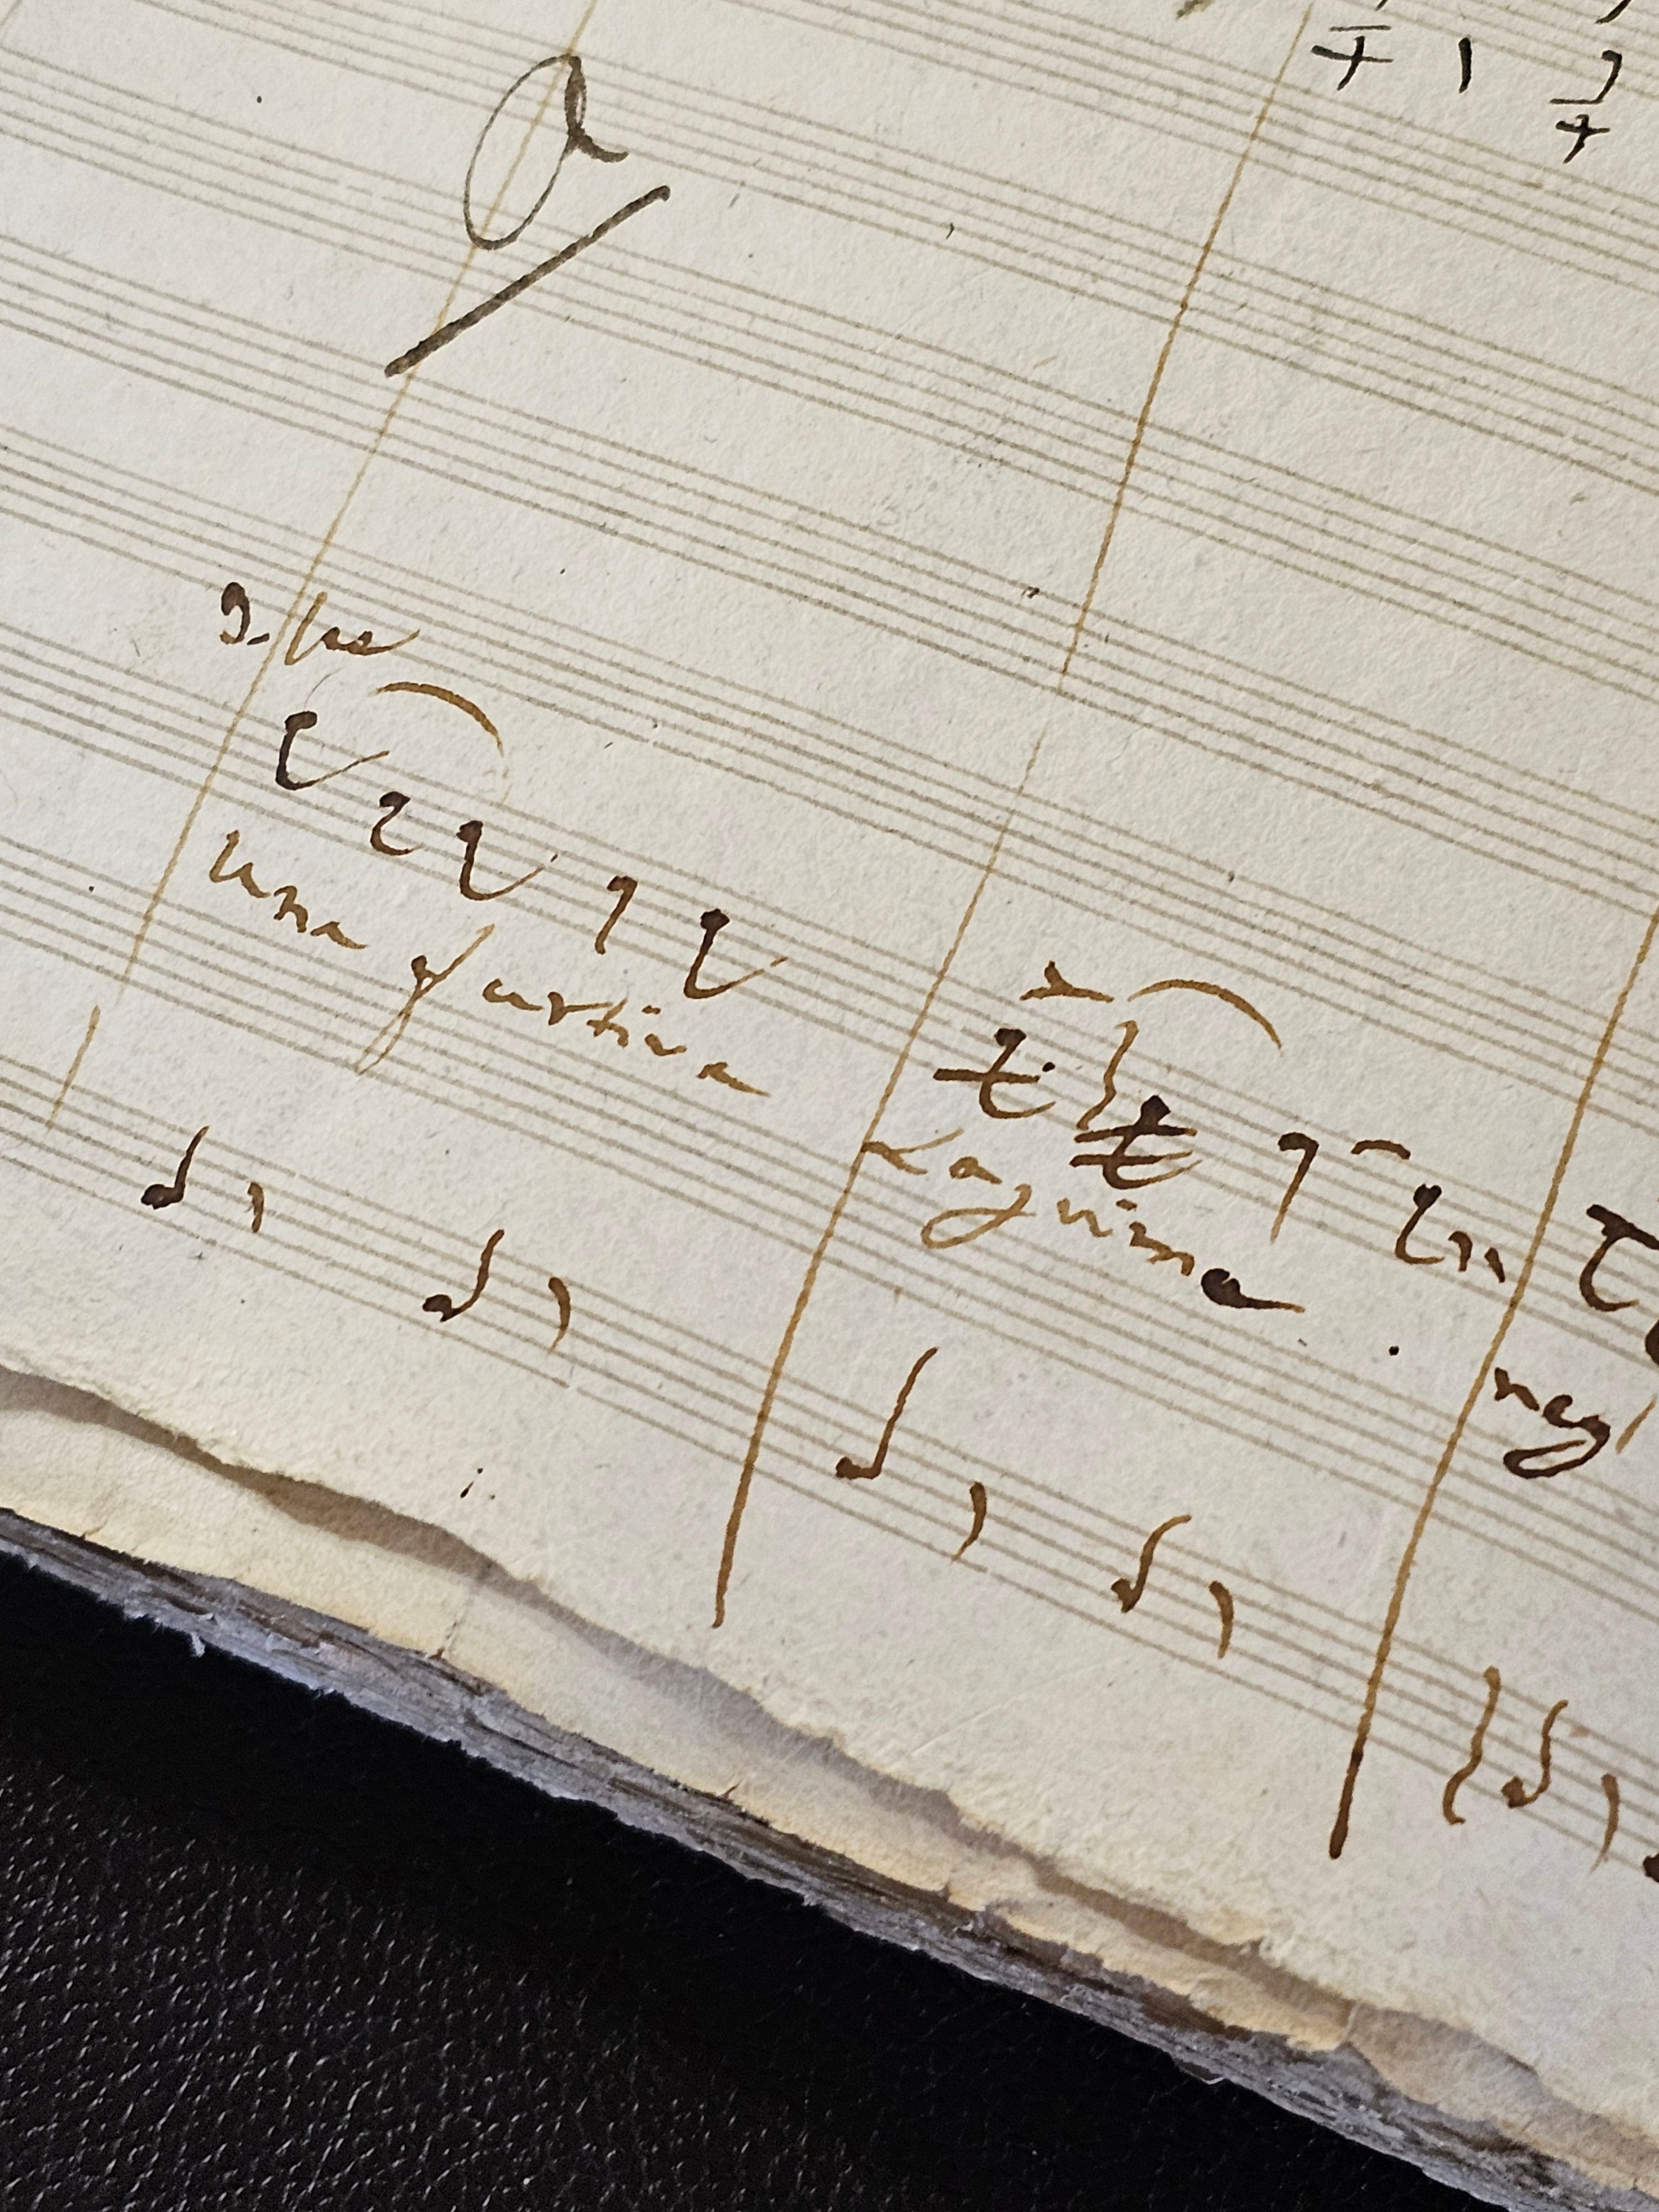 a
una furtiva
Lagrima
neg